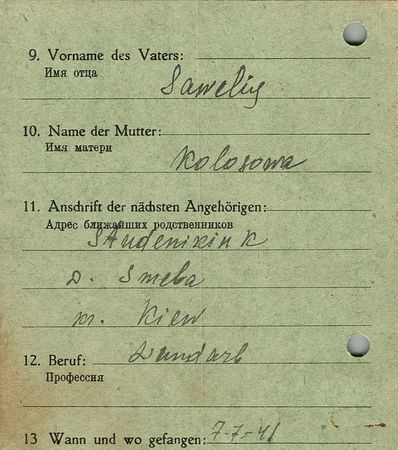 9. Vorname des Vaters:
Имя отца
Sawelig
10. Name der Mutter:
Имя матери
Kolosowa
11. Anschrift der nächsten Angehörigen:
Адрес ближайших родственников
Studenikin K
D. Smela
kr. Kiew
12. Beruf: Landarb
Профессия
13 Wann und wo gefangen: 7-7-41